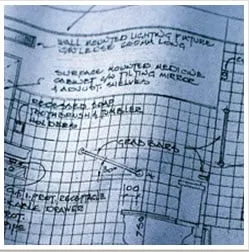 WALL MOUNTED LIGHTING FIXTURE
LONG
SURFACE MOUNTED MEDICINE
CABINET W/ TILTING MIRROR
& ADJUST SHELVES
RECESSED SOAP
TOOTHBRUSH & TUMBLER
HOLDERS
GRAB BARS
G.F.I. PROT. RECEPTACLE
DRAWER
PROT.